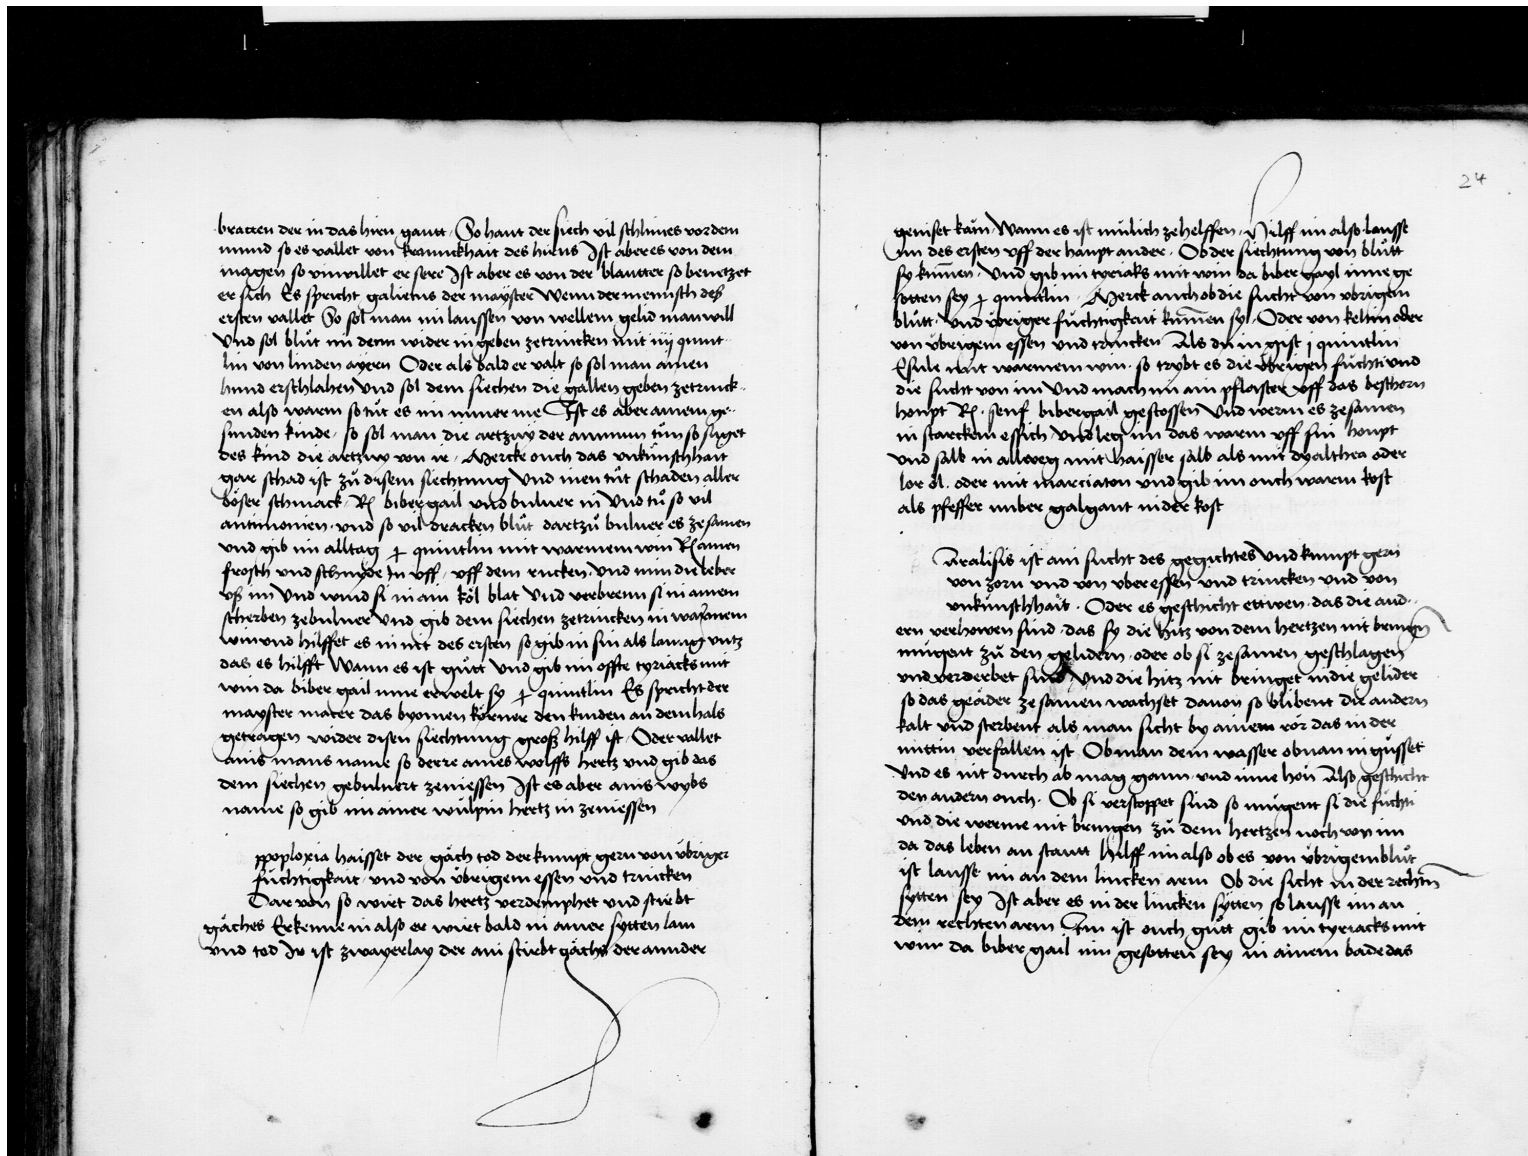 bratten der in das hirn gautt · So haut der siech vil schlimes vor dem
mund so es vallet von kranckhait des hirns Ist aber es von dem
magen so vnwillet er sere Ist aber es von der blautter so benetzet
er sich Es spricht galienus der mayster Wenn der mensch deß
ersten vallet So sol man im laussen von wellem gelid man will
Vnd sol blůt im denn wider in geben zetrincken mit iiij quint
lin von linden ayern Oder als bald er valt so sol man ainen
hund erschlahen Vnd sol dem siechen die gallen geben zetrinck
en also warm so tůt es im nimer me Ist es aber ainem ge
sunden kinde · so sol man die artzny der ammun tůn so suget
des kind die artzny von ir · Mercke ouch das vnkünschhait
gar schad ist zů disem siechtung Vnd inen tůt schaden aller
böser schmack · R/ bibergail vnd buluer in Vnd tů so vil
antimonien · vnd so vil dracken blůt dartzů buluer es zesamen
vnd gib im alltag quintlin mit warmem win R/ ainen
frosch vnd schnyde in vff · vff dem rucken · Vnd nim die leber
vß im Vnd wind si in ain köl blat Vnd verbrenn si in ainem
scherben zebuluer Vnd gib dem siechen zetrincken in warmem
win vnd hilffet es in nit des ersten so gib in sin als lanng vntz
das es hilfft Wann es ist gůtt Vnd gib im offte tyriacks mit
win da biber gail inne erwelt sy quintlin Es spricht der
mayster mater das byomen körner den kinden an dem hals
getragen wider disen siechtung groß hilff ist · Oder vallet
ains mans name so derre aines wolffs hertz vnd gib das
dem siechen gebuluert zeniessen Ist es aber ains wybs
name so gib im ainer wulpin hertz in zeniessen
ppoploxia haisset der gäch tod der kumpt gern von übriger
füchtigkait · vnd von übrigem essen vnd trincken
Dar von so wirt das hertz verdemphet vnd stirbt
gäches Erkenne in also er wirt bald in ainer sytten lam
vnd tod Ir ist zwayerlay der ain stirbt gächs der annder
24
geniset kům Wann es ist mülich ze helffen · Hilff im also lausse
im des ersten vff der haupt ander · Ob der siechtung von blůtt
sy kumen · Vnd gib im tyriaks mit win da biber gayl inne ge
sotten sey quintlin · Merck auch ob die sucht von vbrigem
blůtt · vnd übriger füchtigkait kumen sy · Oder von keltin oder
von übrigem essen vnd trincken Als du im gist j quintlin
Esule mit warmem win · so trybt es die übrigen füchti vnd
die sucht von im Vnd mach im ain pflaster vff das beschorn
houpt R/ · senf bibergail gestossen Vnd werm es zesamen
in starckem essich · Vnd leg im das warm vff sin houpt
Vnd salb in allweg mit haisser salb als mit dyalthea oder
lor öl · oder mit marciaton vnd gib im ouch warm kost
als pfeffer imber galgant in der kost
aralisis ist ain sucht des gegichtes Vnd kumpt gern
von zorn vnd von vber essen vnd trincken vnd von
vnkünschhait · Oder es geschicht ettwen · das die aud
ern verhowen sind · das sy die hitz von dem hertzen nit bringen
mügent zů den gelidern · oder ob si zesamen geschlagen
vnd verderbet sind Vnd die hitz nit bringet in die gelider
so das geäder ze samen wachset dauon so blibent die audern
kalt vnd sterbent als man sicht by ainem rör das in der
mittin verfallen ist Ob man dem wasser obnan in güsset
Vnd es nit durch ab mag gann · vnd inne hon Also geschicht
den audern ouch · Ob si verstoppet sind so mügent si die füchti
vnd die werme nit bringen zů dem hertzen noch von im
da das leben an stautt hilff im also ob es von übrigem blůt
ist lausse im an dem lincken arm Ob die sicht in der rechtn
sytten sey Ist aber es in der lincken sytten so lausse im an
dem rechten arm Im ist ouch gůtt gib im tyriacks mit
win da biber gail inn gesotten sey in ainem bade das